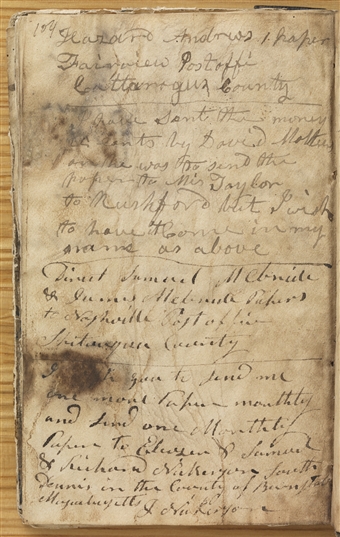 184
Hazard Andrews 1 paper
Fairview Postoffi
Cattaraugus County
I have sent the money
cents by David
he was to send the
paper to Mr Taylor
to Rushford but I wish
to have it come in my
name as above
Direct Samuel McBride
& James McBride Papers
to Nashville Post office
County
I you to send me
one more Paper monthly
and send one Monthly
Paper to & Samuel
& Richard Nickerson South
Dennis in the County of Barnstab
Massachusetts J Nickerson